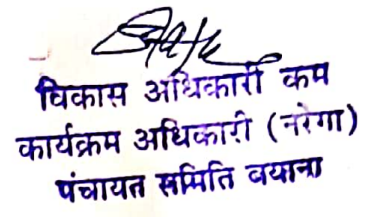 विकास अधिकारी कम
कार्यक्रम अधिकारी (नरेगा)
पंचायत समिति बयाना